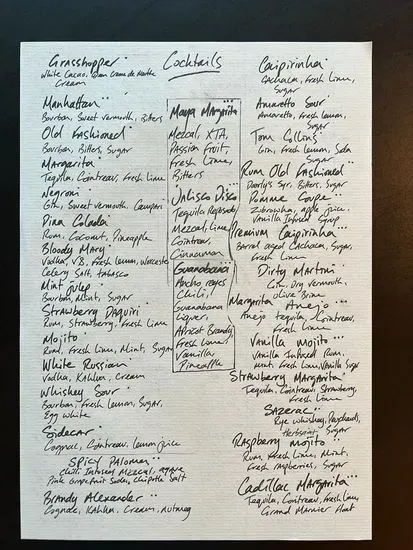 Cocktails
Grasshopper
White Cacao, Green Creme de Menthe
Cream
Manhattan
Bourbon, Sweet Vermouth, Bitters
Old Fashioned
Bourbon, Bitters, Sugar
Margarita
Tequila, Cointreau, Fresh Lime
Negroni
Gin, Sweet vermouth, Campari
Pina Colada
Rum, Coconut, Pineapple
Bloody Mary
Vodka, VB, Fresh lemon, Worcester
Celery Salt, tabasco
Mint Julep
Bourbon, Mint, Sugar
Strawberry Daquiri
Rum, Strawberry, Fresh Lime
Mojito
Rum, Fresh Lime, Mint, Sugar
White Russian
Vodka, Kahlua, Cream
Whiskey Sour
Bourbon, Fresh Lemon, Sugar,
Egg White
Sidecar
Cognac, Cointreau, Lemon juice
Spicy Paloma
Chilli Infused Mezcal, agave
Pink Grapefruit Soda, Chipotle Salt
Brandy Alexander
Cognac, Kahlua, Cream, nutmeg
Maya Margarita
Mezcal, XTA,
Passion Fruit,
Fresh Lime,
Bitters
Jalisco Disco
Tequila Reposado,
Mezcal, Lime
Cointreau,
Cinnamon
Guanabana
Ancho reyes
Chili,
Guanabana
Liquer,
Apricot Brandy
Fresh Lime,
Vanilla
Pineapple
Caipirinha
Cachaca, Fresh Lime,
Sugar
Amaretto Sour
Amaretto, Fresh lemon,
Sugar
Tom Collins
Gin, Fresh Lemon, Soda
Sugar
Rum Old Fashioned
Syr, Bitters, Sugar
Pomme Coupe
Zubrowka, apple juice,
Vanilla Infused Syrup
Premium Caipirinha
Barrel aged Cachaca, Sugar,
Fresh Lime
Dirty Martini
Gin, Dry Vermouth,
Olive Brine
Margarita Anejo
Anejo tequila, Cointreau,
Fresh Lime
Vanilla Mojito
Vanilla Infused Rum,
Mint, Fresh Lime, Vanilla Sugar
Strawberry Margarita
Tequila, Cointreau, Strawberry,
Fresh Lime
Sazerac
Rye Whiskey, Peychauds,
Sugar
Raspberry Mojito
Rum, Fresh Lime, Mint,
Fresh raspberries, Sugar
Cadillac Margarita
Tequila, Cointreau, Fresh Lime,
Grand Marnier Float